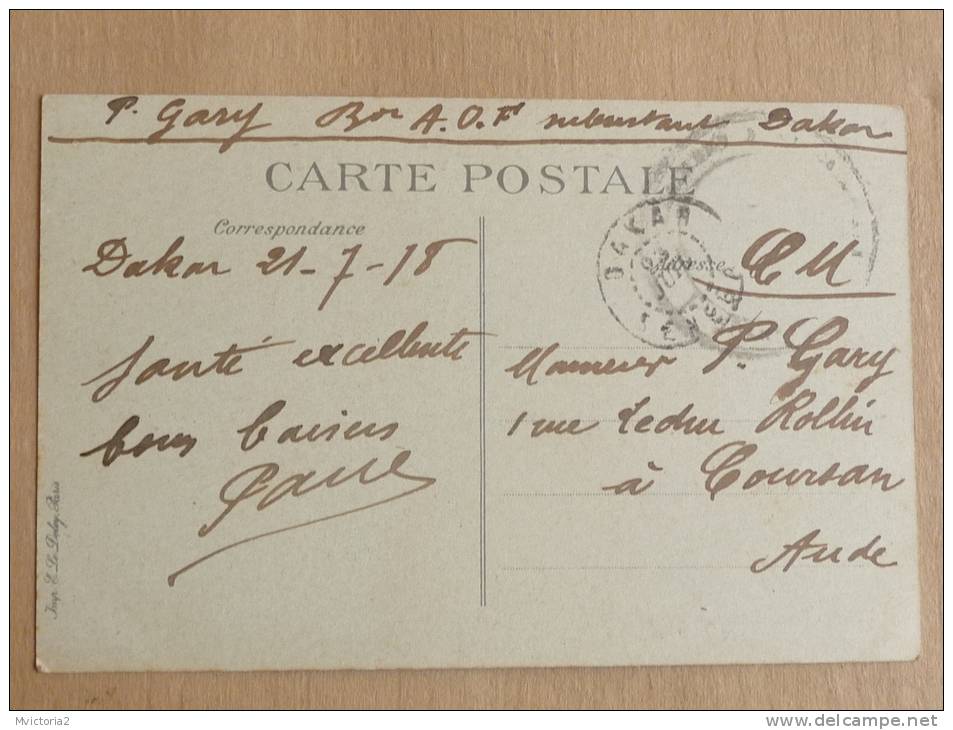 P. Gary Bon A.O.F Dakar
CARTE POSTALE
Correspondance
Adresse
DAKAR
Dakar 21-7-18
F M
Santé excellente
bons baisers
Monsieur P. Gary
1 rue Ledru Rollin
à Coursan
Aude
Imp. E. Le Deley, Paris
Mvictoria2
www.delcampe.net